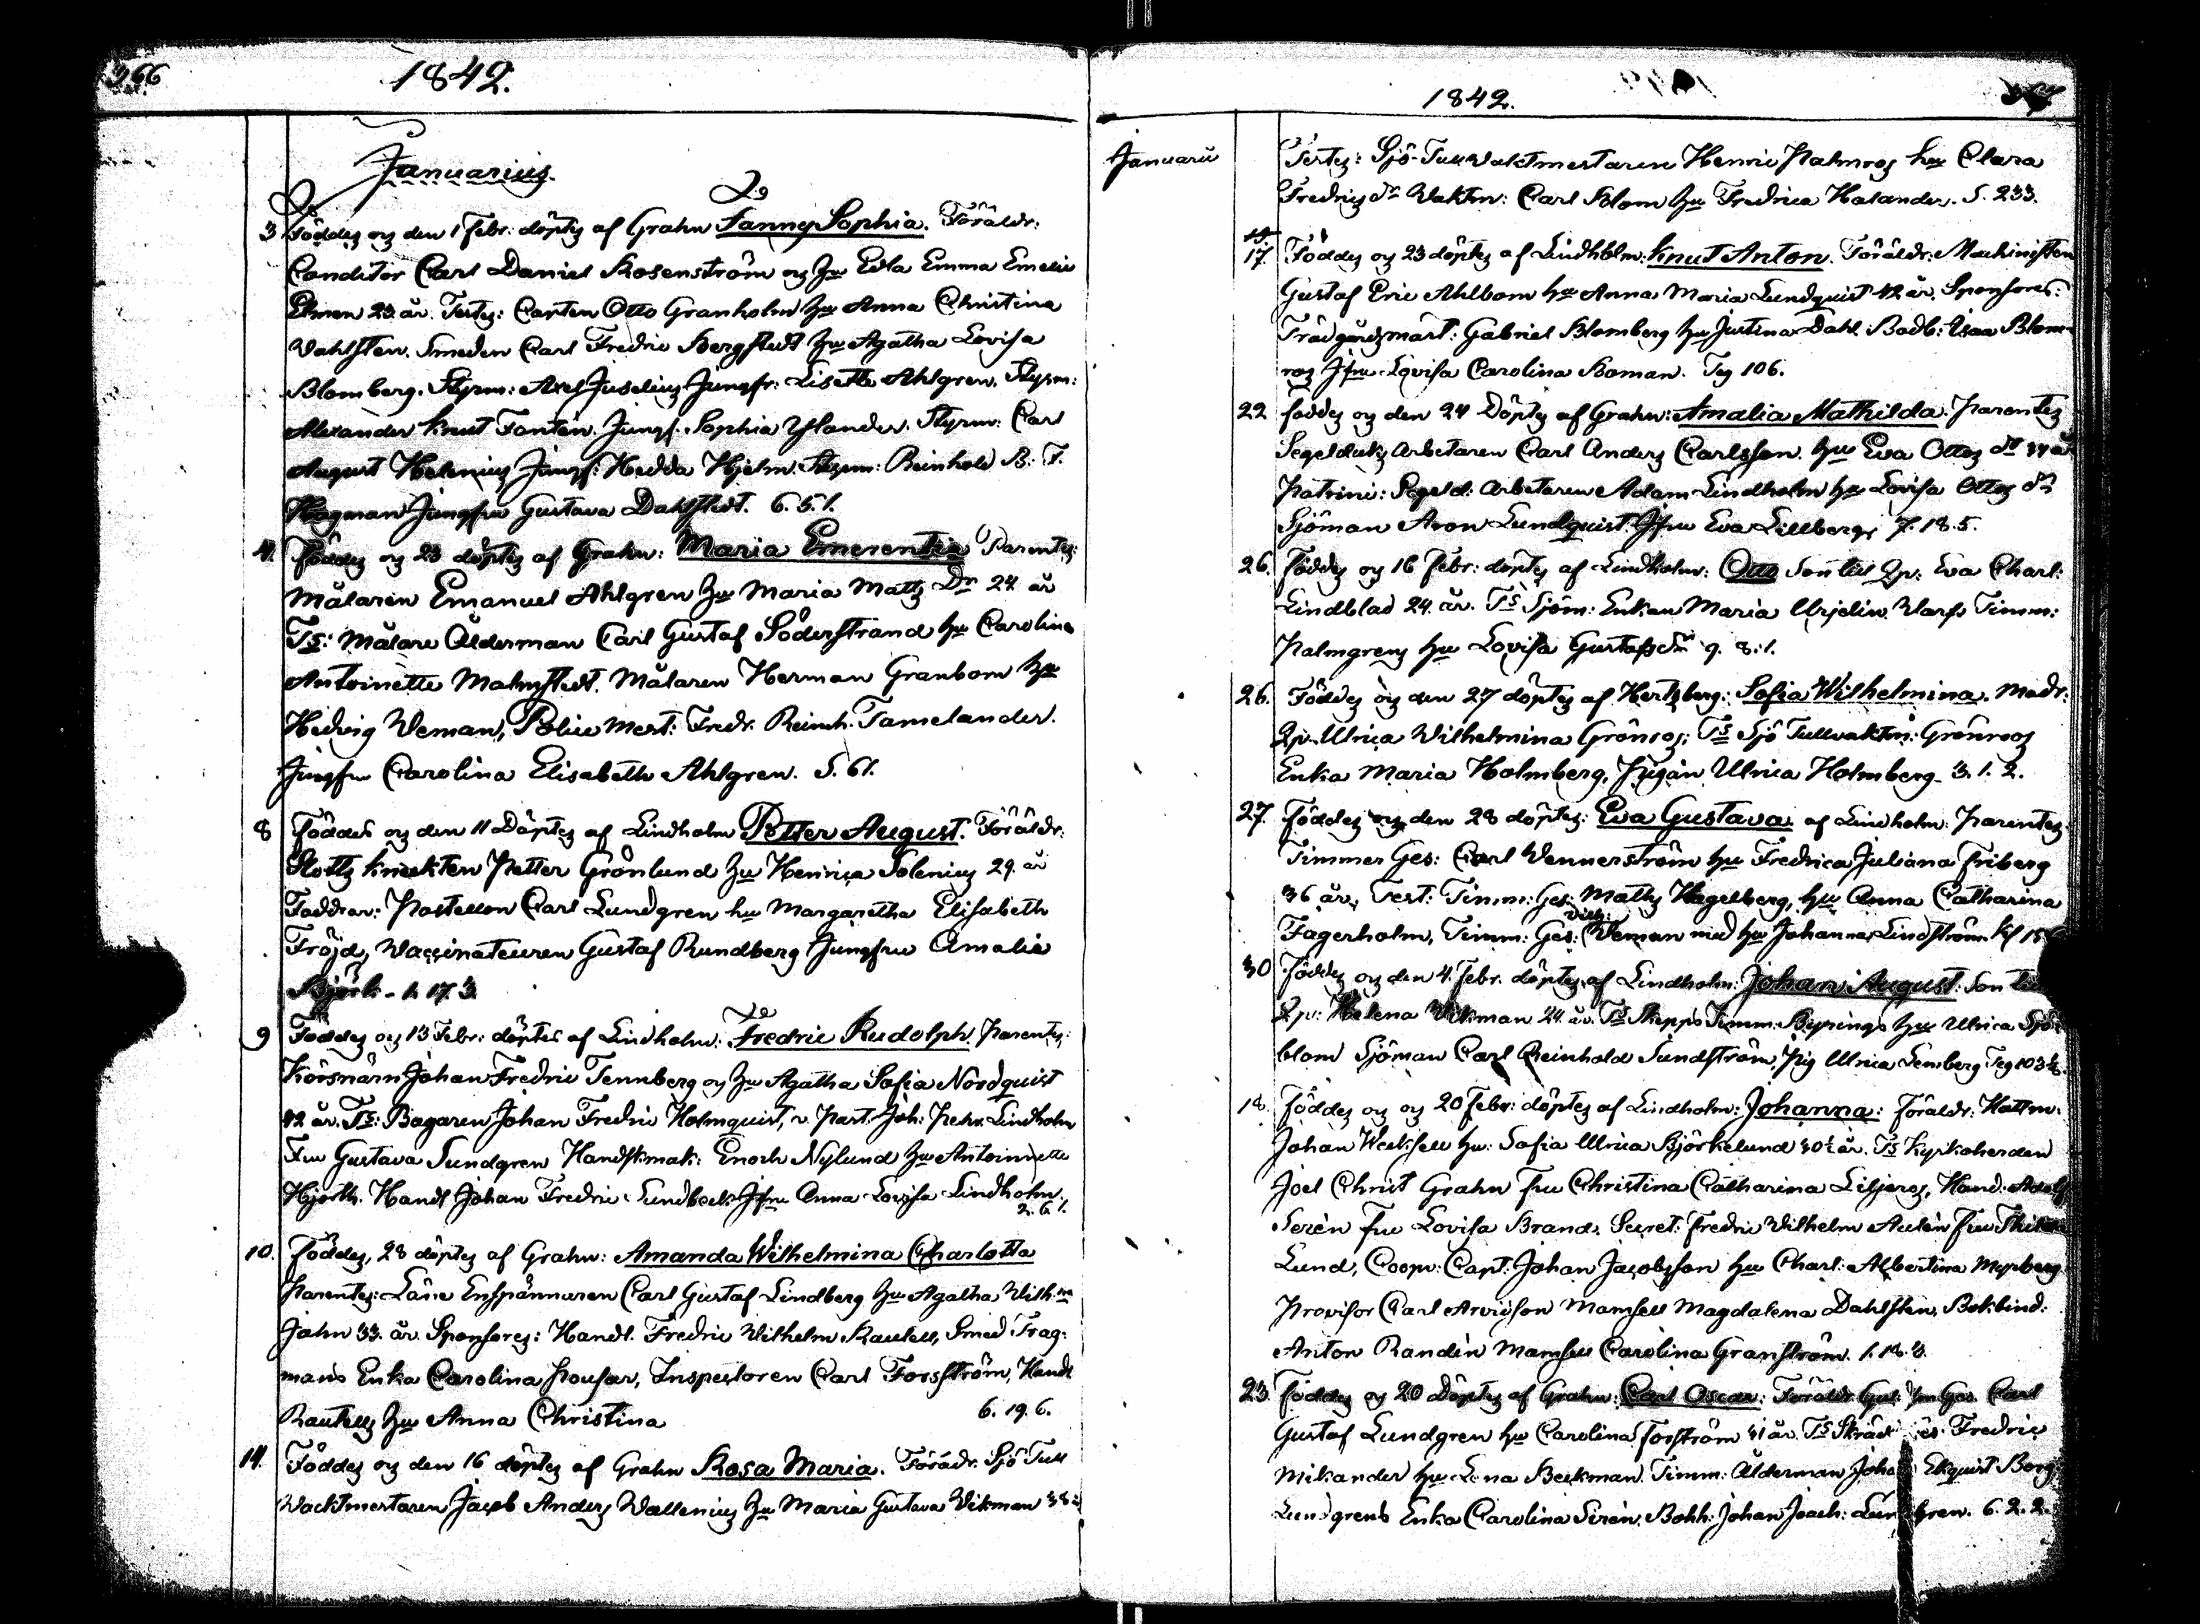 366
1842.
Januarius.
3 Föddes og den 1 Febr: döptes af Grahn Fanny Sophia. Föräldr:
Conditor Carl Daniel Rosenström og hu Edla Emma Emelie
Elmen 23 år. Testes: Carten Otto Granholm hu Anna Christina
Wahlsten. Smeden Carl Fredric Bergstedt hu Agatha Lovisa
Blomberg. Styrm: Axel Juselius Jungfr: Lisette Ahlgren. Styrm:
Alexander Knut Fonten. Jungf. Sophia Ylander. Styrm: Carl
August Helenius Jungf: Hedda Hjelm. Styrm: Reinhold B: T.
Hagman Jungfru Gustava Dahlstedt. 6. 5. 1.
4. Föddes og 23 döptes af Grahn: Maria Emerentia Parentes:
Målaren Emanuel Ahlgren hu Maria Matts Dr 24 år
Ts: Målare Ålderman Carl Gustaf Söderstrand hu Carolina
Antoinette Malmstedt. Målaren Herman Granbom hu
Hedvig Weman, Police Mest: Fredr. Reinh. Tamelander.
Jungfru Carolina Elisabeth Ahlgren. 5. 61.
8 Föddes og den 11 Döptes af Lindholm Petter August. Föräldr:
Slotts Knekten Petter Grönlund hu Henrica Solenius 29. år
Faddrar: Postellon Carl Lundgren hu Margaretha Elisabeth
Fröjd, Vaccinateuren Gustaf Rundberg Jungfru Amalia
Björk - 1. 17. 3.
9 Föddes og 13 Febr: döptes af Lindholm: Fredric Rudolph. Parentes:
Körsnärn Johan Fredric Tennberg og hu Agatha Sofia Nordquist
42 år. Ts: Bagaren Johan Fredric Holmquist, v. Past. Joh: Petr. Lindholm
Fru Gustava Sundgren Handskmak: Enoch Nylund hu Antoinette
Hjorth. Handl Johan Fredric Lundbeck Jfru Anna Lovisa Lindholm.
2. 6. 1.
10. Föddes, 28 döptes af Grahn: Amanda Wilhelmina Charlotta
Parentes: Läne Enspännaren Carl Gustaf Lindberg hu Agatha Wilh:na
Jahn 33. år. Sponsores: Handl. Fredric Wilhelm Rautell, Smed Frag-
mans Enka Carolina Pousar, Inspectoren Carl Forsström, Handl
Rautells hu Anna Christina 6. 19. 6.
14. Föddes og den 16 döptes af Grahn Rosa Maria. Föräldr. Sjö Tull
Wacktmestaren Jacob Anders Wallenius hu Maria Gustava Wikman 38:
1842.
Januarii
Testes: Sjö-Tull Waktmestaren Henric Palmros hu Clara
Fredrics dr Waktm: Carl Blom hu Fredrica Halander. 5. 233.
17. Föddes og 23 döptes af Lindholm: Knut Anton. Föräldr: Machinisten
Gustaf Eric Ahlbom hu Anna Maria Lundquist 42 år. Sponsores:
Trädgårdsmäst: Gabriel Blomberg hu Justina Dahl. Badb: Isac Blom-
ros Jfru Lovisa Carolina Boman. Teg 106.
22 föddes og den 24 Döptes af Grahn: Amalia Mathilda. Parentes
Segelduks Arbetaren Carl Anders Carlsson. hu Eva Ottos dr 34 år
Patrini: Segeld: Arbetaren Adam Lindholm hu Lovisa Ottos dr
Sjöman Aron Lundquist. Jfru Eva Lillberg. 7. 18. 5.
26. Föddes og 16 Febr: döptes af Lindholm: Otto Son till Qp: Eva Charl:
Lindblad 24. år. Ts Sjöm: Enkan Maria Urjelin Warfs Timm:
Palmgrens hu Lovisa Gustafsdr 9. 8. 1.
26. Föddes og den 27 döptes af Hertzberg: Sofia Wilhelmina. Modr:
Qp. Ulrica Wilhelmina Grönroos: Ts Sjö Tullvaktm: Grönroos
Enka Maria Holmberg, Pigan Ulrica Holmberg. 3. 1. 2.
27. Föddes og den 28 döptes: Eva Gustava. af Lindholm: Parentes.
Timmer Ges: Carl Wennerström hu Fredrica Juliana Friberg
36 år, Test: Timm: Ges: Matts Hagelberg, hu Anna Catharina
Fagerholm, Timm: Ges: Wilh: Weman med hu Johanna Lindström
30 Föddes og den 4. Febr. döptes af Lindholm: Johan August: Son till
Qp: Helena Wikman 24. år. Ts Skepps Timm: Bypings hu Ulrica Sjö-
blom Sjöman Carl Reinhold Sundström, Pig Ulrica Lemberg Teg 103½.
18. föddes og og 20 Febr: döptes af Lindholm: Johanna: Föräldr: Hattm:
Johan Wecksell hu: Sofia Ulrica Björkelund 30½ år. Ts Kyrkoherden
Joel Christ Grahn fru Christina Catharina Liljeros, Hand: Adolf
Serèn fru Lovisa Brand. Secret: Fredric Wilhelm Aulèn fru
Lund, Coopv: Capt: Johan Jacobsson hu Charl: Albertina Myrberg
Provisor Carl Arvidson Mamsell Magdalena Dahlsten, Bokbind:
Anton Randèn Mamsell Carolina Granström. 1. 18. 3.
23. föddes og 20 Döptes af Grahn: Carl Oscar: Föräldr: Ges. Carl
Gustaf Lundgren hu Carolina Forsström 41 år. Ts Fredric
Mikander hu Lena Beckman. Timm: Ålderman Ekquist Borg
Lundgrens Enka Carolina Sirèn. Bokh: Johan Joach: 6. 2. 2.